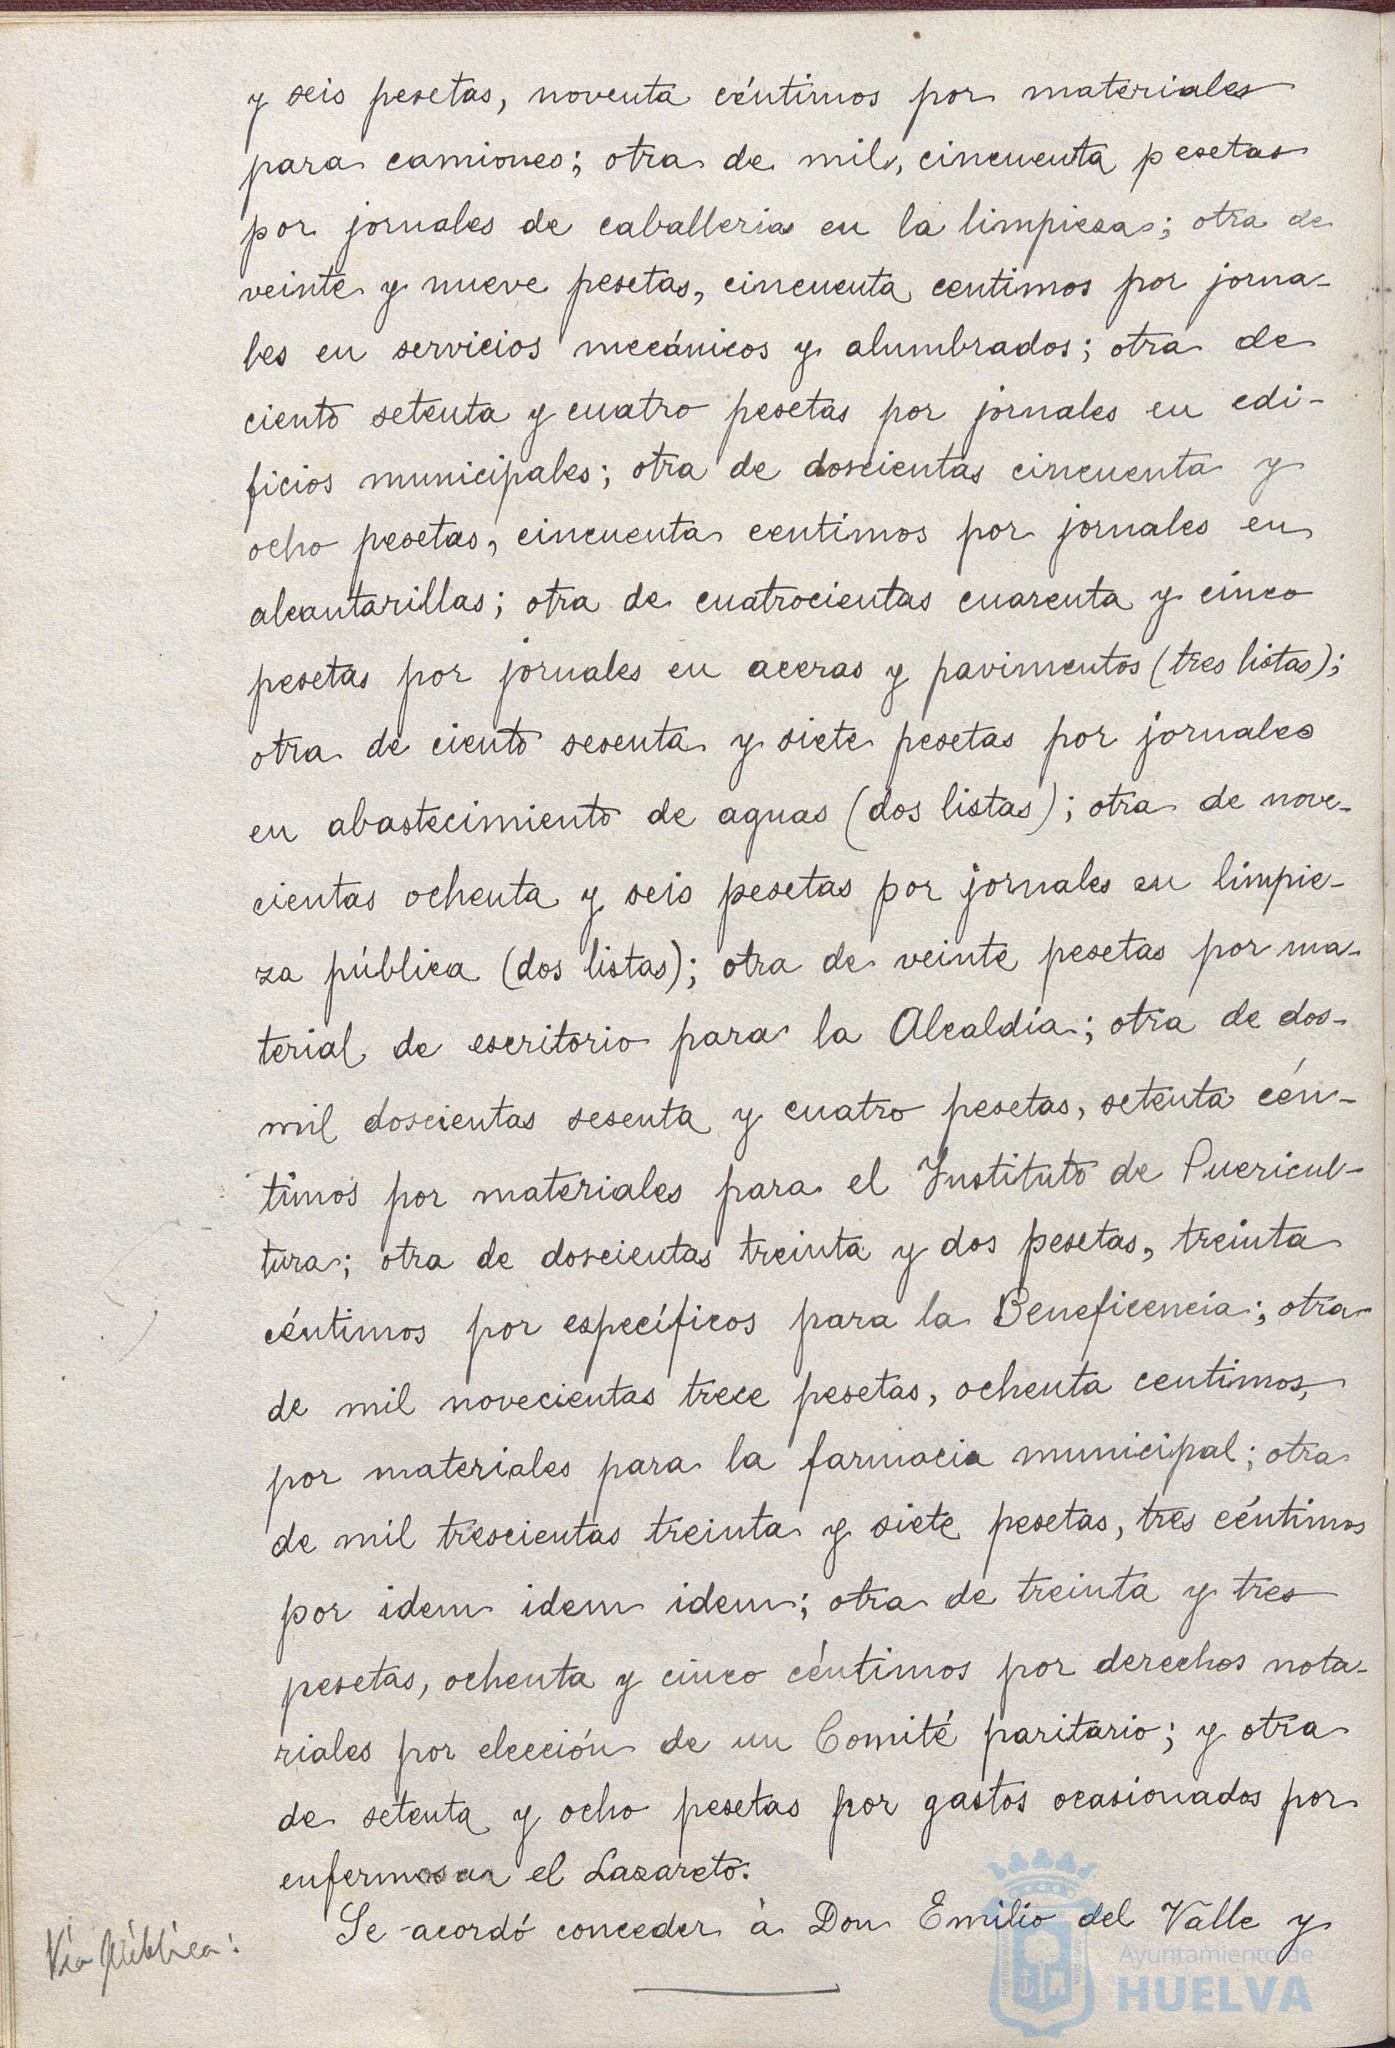 y seis pesetas, noventa céntimos por materiales
para camiones; otra de mil, cincuenta pesetas
por jornales de caballerias en la limpieza; otra de
veinte y nueve pesetas, cincuenta centimos por jorna-
les en servicios mecánicos y alumbrados; otra de
ciento setenta y cuatro pesetas por jornales en edi-
ficios municipales; otra de doscientas cincuenta y
ocho pesetas, cincuenta centimos por jornales en
alcantarillas; otra de cuatrocientas cuarenta y cinco
pesetas por jornales en aceras y pavimentos (tres listas);
otra de ciento sesenta y siete pesetas por jornales
en abastecimiento de aguas (dos listas); otra de nove-
cientas ochenta y seis pesetas por jornales en limpie-
za pública (dos listas); otra de veinte pesetas por ma-
terial de escritorio para la Alcaldía; otra de dos-
mil doscientas sesenta y cuatro pesetas, setenta cén-
timos por materiales para el Instituto de Puericul-
tura; otra de doscientas treinta y dos pesetas, treinta
céntimos por específicos para la Beneficencia; otra
de mil novecientas trece pesetas, ochenta centimos,
por materiales para la farmacia municipal; otra
de mil trescientas treinta y siete pesetas, tres céntimos
por idem idem idem; otra de treinta y tres
pesetas, ochenta y cinco céntimos por derechos nota-
riales por elección de un Comité paritario; y otra
de setenta y ocho pesetas por gastos ocasionados por
enfermos en el Lazareto.
Vía Pública: Se acordó conceder à Don Emilio del Valle y
Ayuntamiento de
HUELVA